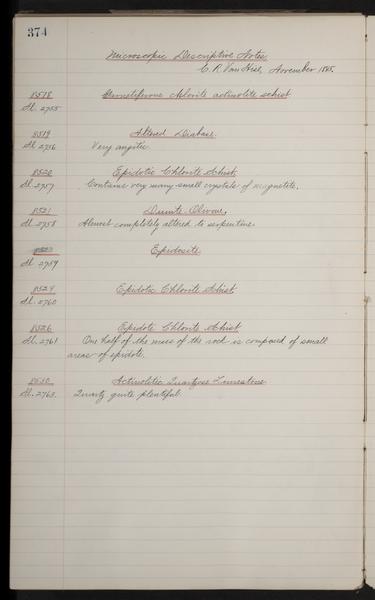 374
Microscopic Descriptive Notes
C. R. Van Hise, November 1885.
8518 chlorite actinolite schist
Sl. 2755
8519 Altered Diabase
Sl. 2756 Very augitic.
8520 Epidotic Chlorite Schist
Sl. 2757 Contains very many small crystals of magnetite.
8521 Dunite Olivine.
Sl. 2758 Almost completely altered to serpentine.
Epidosite
Sl. 2759
8524 Epidotic Chlorite Schist
Sl. 2760
8526 Epidotic Chlorite Schist
Sl. 2761 One half of the mass of the rock is composed of small
areas of epidote.
8530 Actinolitic Quartzose Limestone
Sl. 2763. Quartz quite plentiful.